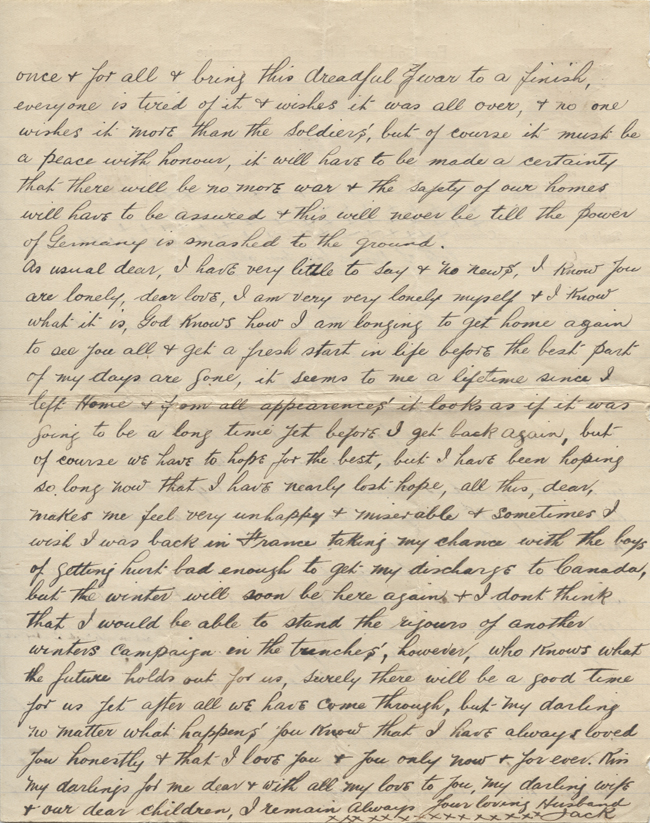 once & for all & bring this dreadful war to a finish,
everyone is tired of it & wishes it was all over, & no one
wishes it more than the soldiers', but of course it must be
a peace with honour, it will have to be made a certainty
that there will be no more war & the safety of our homes
will have to be assured & this will never be till the power
of Germany is smashed to the ground.
As usual dear, I have very little to say & no news, I know you
are lonely, dear love, I am very very lonely myself & I know
what it is, God knows how I am longing to get home again
to see you all, & get a fresh start in life before the best part
of my days are gone, it seems to me a lifetime since I
left Home & from all appearences' it looks as if it was
going to be a long time yet before I get back again, but
of course we have to hope for the best, but I have been hoping
so long now that I have nearly lost hope, all this, dear,
makes me feel very unhappy & miserable & sometimes I
wish I was back in France taking my chance with the boys
of getting hurt bad enough to get my discharge to Canada,
but the winter will soon be here again & I dont think
that I would be able to stand the rigours of another
winters campaign in the trenches', however, who knows what
the future holds out for us, surely there will be a good time
for us yet after all we have come through, but my darling
no matter what happens' you know that I have always loved
you honestly & that I love you & you only now & for ever. Kiss
my darlings for me dear & with all my love to you, my darling wife
& our dear children, I remain always Your loving Husband
x x x x x x x x x x x x x Jack